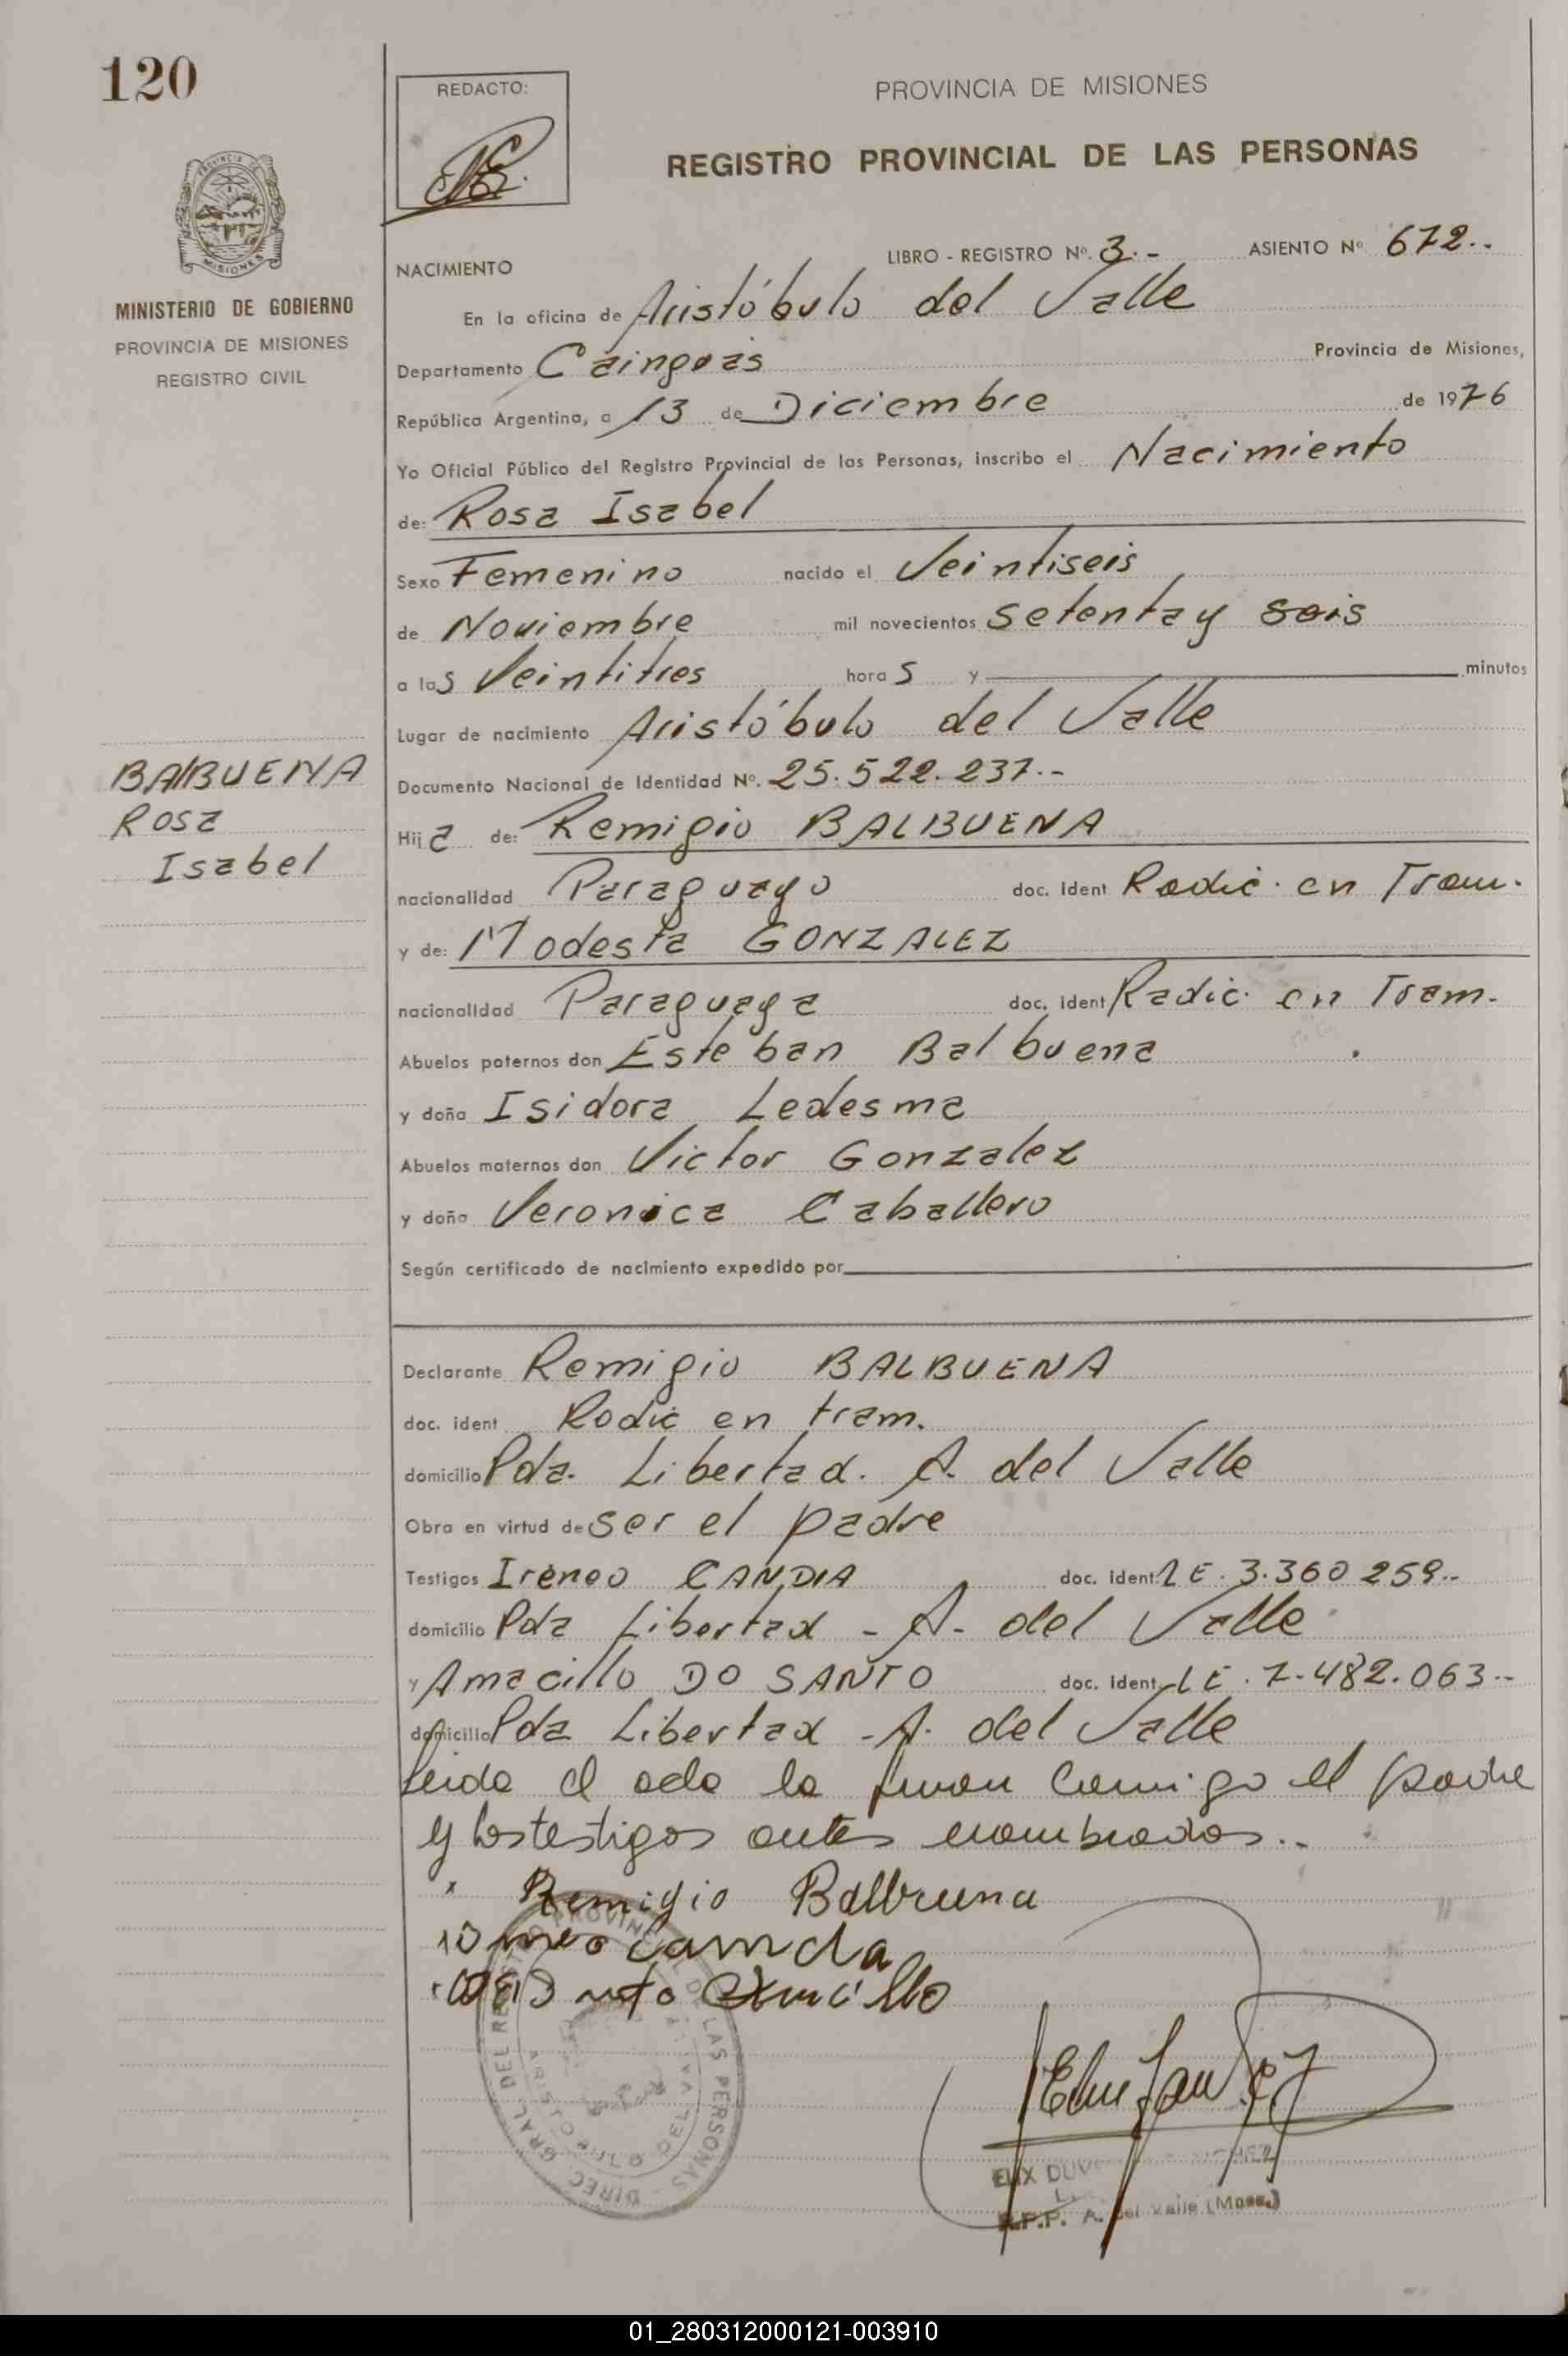 120
REDACTO:
PROVINCIA DE MISIONES
REGISTRO PROVINCIAL DE LAS PERSONAS
MISIONES
MINISTERIO DE GOBIERNO
PROVINCIA DE MISIONES
REGISTRO CIVIL
LIBRO - REGISTRO Nº. 3.- ASIENTO Nº 672..
NACIMIENTO
En la oficina de Aristóbulo del Valle
Departamento Cainguas Provincia de Misiones,
República Argentina, a 13 de Diciembre de 1976
Yo Oficial Público del Registro Provincial de las Personas, inscribo el Nacimiento
de: Rosa Isabel
Sexo Femenino nacido el Veintiseis
de Noviembre mil novecientos setenta y seis
a las Veintitres horas y minutos
Lugar de nacimiento Aristóbulo del Valle
BALBUENA
Rosa
Isabel
Documento Nacional de Identidad Nº. 25.522.237.-
Hija de: Remigio BALBUENA
nacionalidad Paraguayo doc. ident Radic. en Tram.
y de: Modesta GONZALEZ
nacionalidad Paraguaya doc. ident Radic. en Tram.
Abuelos paternos don Esteban Balbuena
y doña Isidora Ledesma
Abuelos maternos don Victor Gonzalez
y doña Veronica Caballero
Según certificado de nacimiento expedido por
Declarante Remigio BALBUENA
doc. ident Radic en tram.
domicilio Pda. Libertad. A. del Valle
Obra en virtud de ser el padre
Testigos Ireneo CANDIA doc. ident. LE. 3.360.259..
domicilio Pda Libertad - A. del Valle
y Amacillo DO SANTO doc. ident LE. 7.482.063..
domicilio Pda Libertad - A. del Valle
Leida el acta la firman comigo el padre
y los testigos antes nombrados..
x Remigio Balbuena
DIREC. GRAL. DEL REGISTRO PROVINCIAL DE LAS PERSONAS
ARISTOBULO DEL VALLE
R.P.P. A. del Valle (Mnes.)
01_280312000121-003910